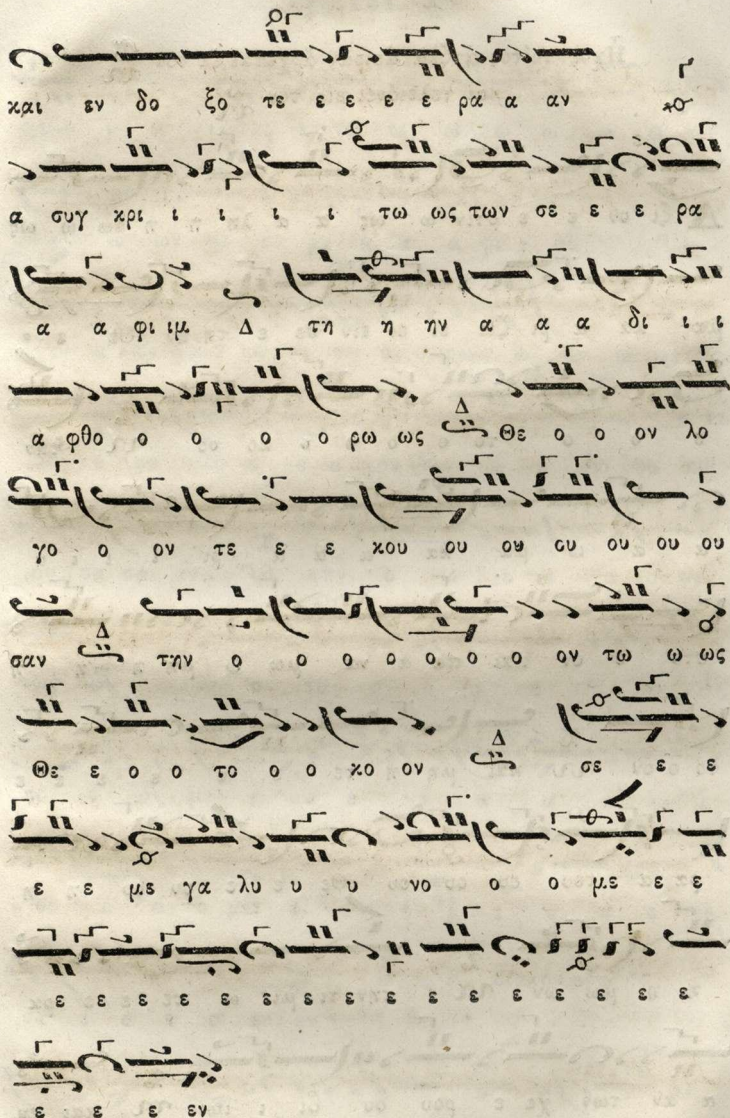 και εν δο ξο τε ε ε ε ε ρα α αν
α συγ κρι ι ι ι ι τω ως των σε ε ε ρα
α α φι ιμ Δ τη η ην α α α δι ι ι
α φθο ο ο ο ο ρω ως Δ Θε ο ο ον λο
γο ο ον τε ε ε κου ου ου ου ου ου ου
σαν Δ την ο ο ο ο ο ο ο ον τω ω ως
Θε ε ο ο το ο ο κο ον Δ σε ε ε
ε ε με γα λυ υ υ νο ο ο με ε ε
ε ε ε ε ε ε ε ε ε ε ε ε ε ε ε ε
ε ε ε εν